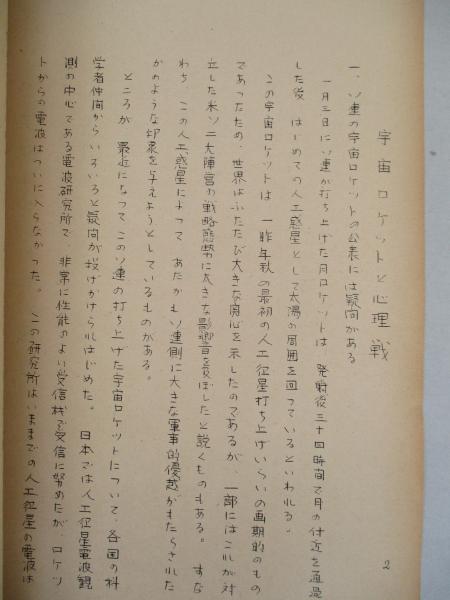 2
宇宙ロケットと心理戦
一、ソ連の宇宙ロケットの公表には疑問がある
一月三日にソ連が打ち上げた月ロケットは 発射後三十四時間で月の付近を通過
した後 はじめての人工惑星として太陽の周囲を回っているといわれる。
この宇宙ロケットは 一昨年秋の最初の人工衛星打ち上げいらいの画期的のもの
であったため、世界はふたたび大きな関心を示したのであるが、一部にはこれが対
立した米ソ二大陣営の戦略態勢に大きな影響を及ぼしたと説くものもある。 すな
わち この人工惑星によって あたかもソ連側に大きな軍事的優越がもたらされた
かのような印象を与えようとしているものがある。
ところが 最近になってこのソ連の打ち上げた宇宙ロケットについて、各国の科
学者仲間から いろいろと疑問が投げかけられはじめた。 日本では人工衛星電波観
測の中心である電波研究所で 非常に性能のよい受信機で受信に努めたが、ロケッ
トからの電波はついに入らなかった。 この研究所はいままでの人工衛星の電波は